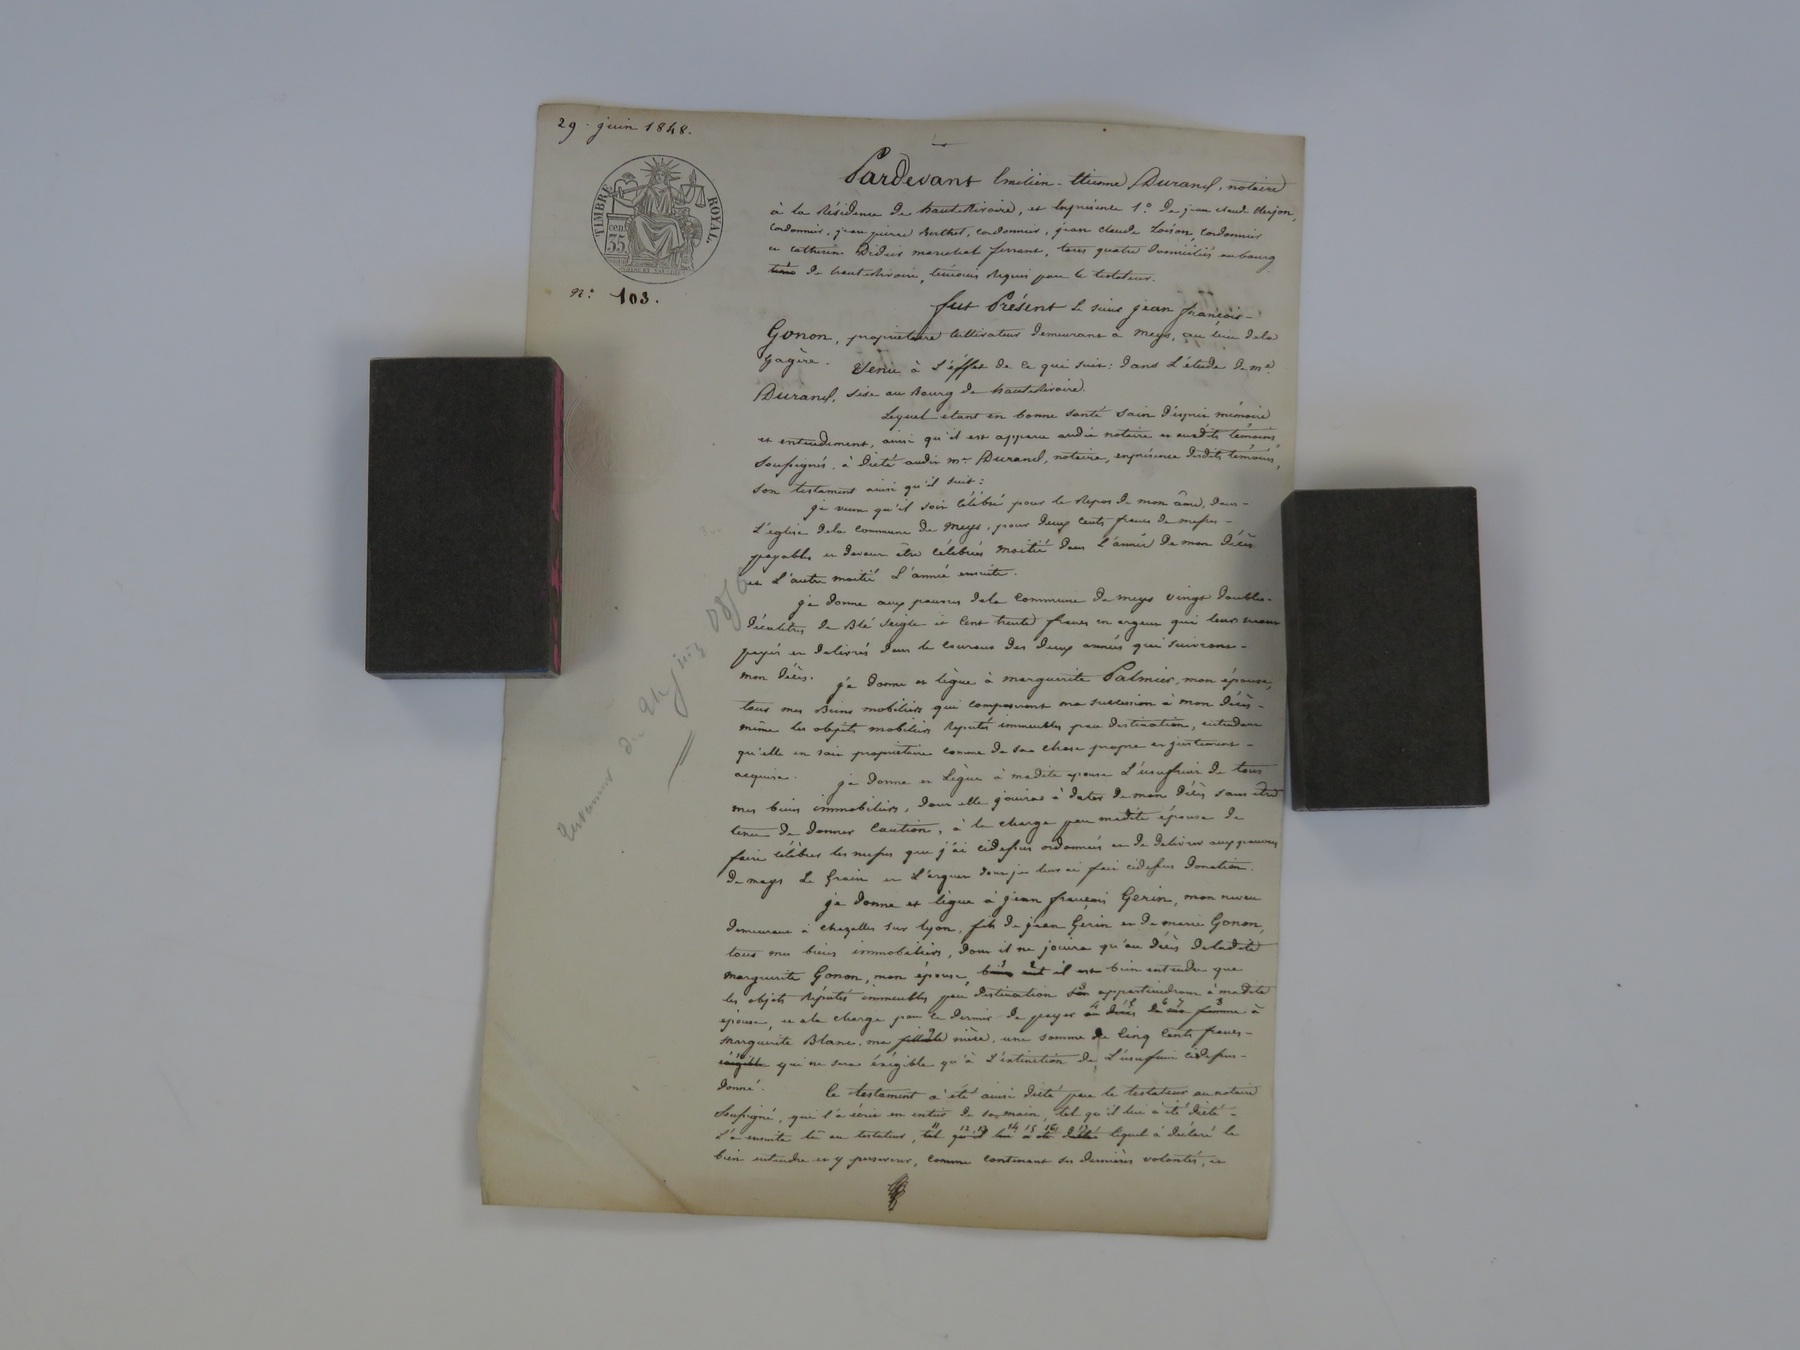 29 juin 1848.
TIMBRE ROYAL.
cen.
35
N.° 103.
Pardevant Emilien-Etienne Durand, notaire
à la Résidence de hauteRivoire, et En présence 1.° de jean claude
cordonnier, jean pierre Berthet, cordonnier, jean claude Loison, cordonnier
et catherin Didier marechal ferrant, tous quatre domiciliés au bourg
de hauteRivoire, témoins Requis par le testateur.
fut Présent Le sieur jean françois-
Gonon, proprietaire cultivateur demeurant à Meys, au lieu dela
gagère. Venu à L'éffet de ce qui suit: dans L'étude de m.e
Durand, sise au Bourg de hauteRivoire.
Lequel etant en bonne santé sain d'esprit mémoire
et entendement, ainsi qu'il est apparu audit notaire et auxdits témoins,
Soussignés, à dicté audit m.e Durand, notaire, enprésence desdits témoins,
son testament ainsi qu'il suit:
je veux qu'il soit célébré pour le Repos de mon âme, dans-
L'église dela commune de Meys, pour deux cents francs de messes-
payables et devant être célébrées moitié dans L'année de mon décès
et L'autre moitié L'année ensuite.
je donne aux pauvres dela Commune de meys vingt doubles-
décalitres de Blé Seigle et Cent trente francs en argent qui leur seront
payés et délivrés dans le courant des deux années qui suivront-
mon décès. je donne et lègue à marguerite Palmier, mon épouse,
tous mes Biens mobiliers qui composeront ma succession à mon décès-
même les objets mobiliers Réputés immeubles par destination, entendant
qu'elle en soit propriétaire comme de sa chose propre et justement-
acquise. je donne et Lègue à madite epouse L'usufruit de tous
mes biens immobiliers, dont elle jouira à dater de mon décès sans être
tenue de donner Caution, à la charge par madite épouse de
faire célébrer les messes que j'ai cidessus ordonnées et de délivrer aux pauvres
de meys Le Grain et L'argent dont je leur ai fait cidessus donation.
je donne et lègue à jean françois Gerin, mon neveu
demeurant à chazelles sur Lyon, fils de jean Gerin et de marie Gonon,
tous mes biens immobiliers, dont il ne jouira qu'au décès deladite
Marguerite Gonon, mon épouse, il est bien entendu que
les objets Réputés immeubles par destination appartiendront à madite
épouse, et ala charge par ce dernier de payer au décès de ma femme à
Marguerite Blanc, ma nièce, une somme de Cinq Cents francs-
exigible qui ne sera éxigible qu'à L'extinction de L'usufruit cidessus-
donné. Ce testament à été ainsi dicté par le testateur au notaire
Soussigné, qui l'a écrit en entier de sa main, tel qu'il lui à été dicté-
L'a ensuite lu au testateur, tel qu'il lui a été dicté lequel à déclaré le
bien entendre et y perseverer, comme contenant ses dernières volontés, et